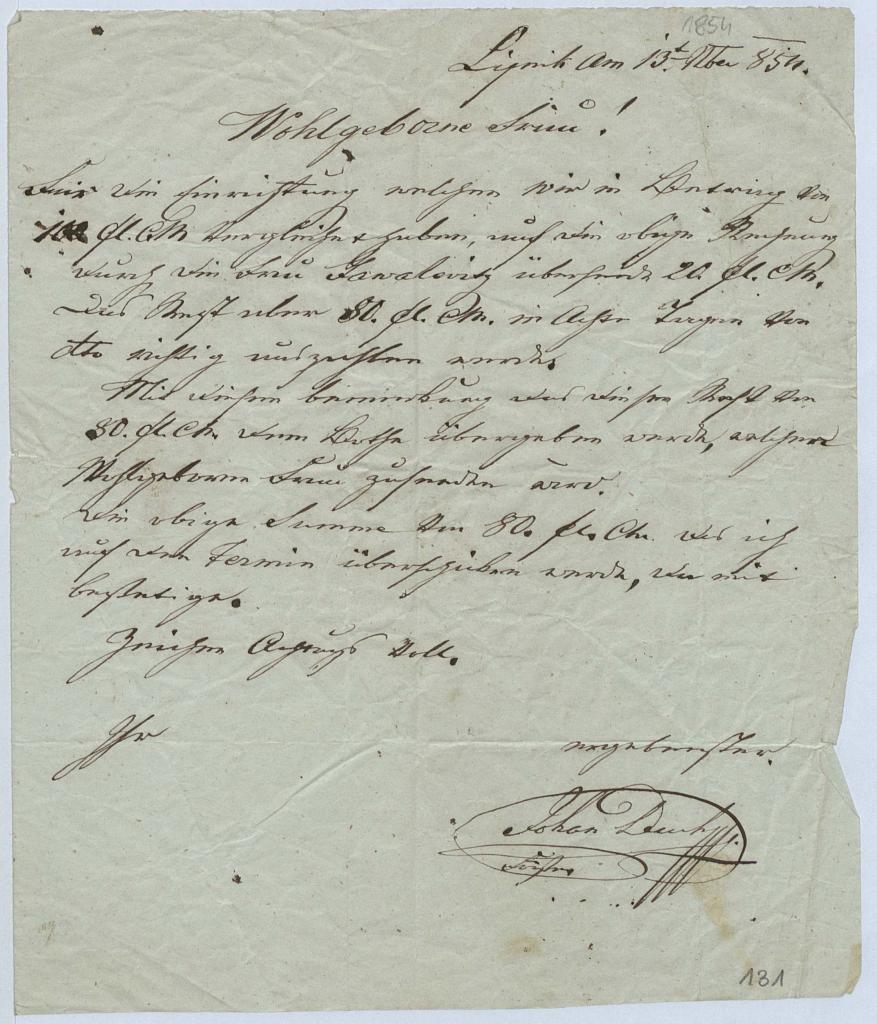 1854
Lipnik am 13t. Xber 854.
Wohlgeborne Frau!
Für die Einrichtung welchen wir in Betrag von
100 fl. CM vergleichet haben, auf die obige Rechnung
durch die Frau übersende 20 fl. CM.
Das Rest aber 80. fl. CM. in Acht Tagen von
dto richtig auszahlen werde.
Mit diesen bemerkung das diesen Rest von
80. fl. CM. dem Bothe übergeben werde, welcher
Wohlgeborne Frau zusenden wird.
Die obige Summe von 80. fl. CM. das ich
auf den Termin überschüken werde, da mit
bestetige.
Zeichne Achtungs voll.
Ihr
ergebenster
Johan
131